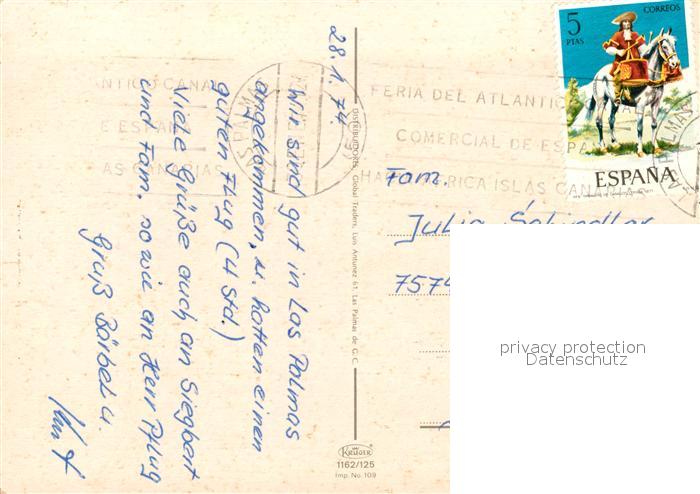 28.1.74
Wir sind gut in Las Palmas
angekommen, u. hatten einen
guten Flug (4 Std.)
Viele Grüße auch an Siegbert
und Fam. sowie an Herr Pflug
Gruß Bärbel u.
Kurt
DISTRIBUIDORES: Global Traders, Luis Antunez 61, Las Palmas de G. C.
KRÜGER
1162/125
Imp. No. 109
5
PTAS
CORREOS
ESPAÑA
FERIA DEL ATLANTIC
COMERCIAL DE ESPAÑ
AFRICA ISLAS CANA
ANTICO CANA
E ESPAÑ
AS CANARIAS
LAS PALMAS
Fam.
Julius Schindler
7574
privacy protection
Datenschutz